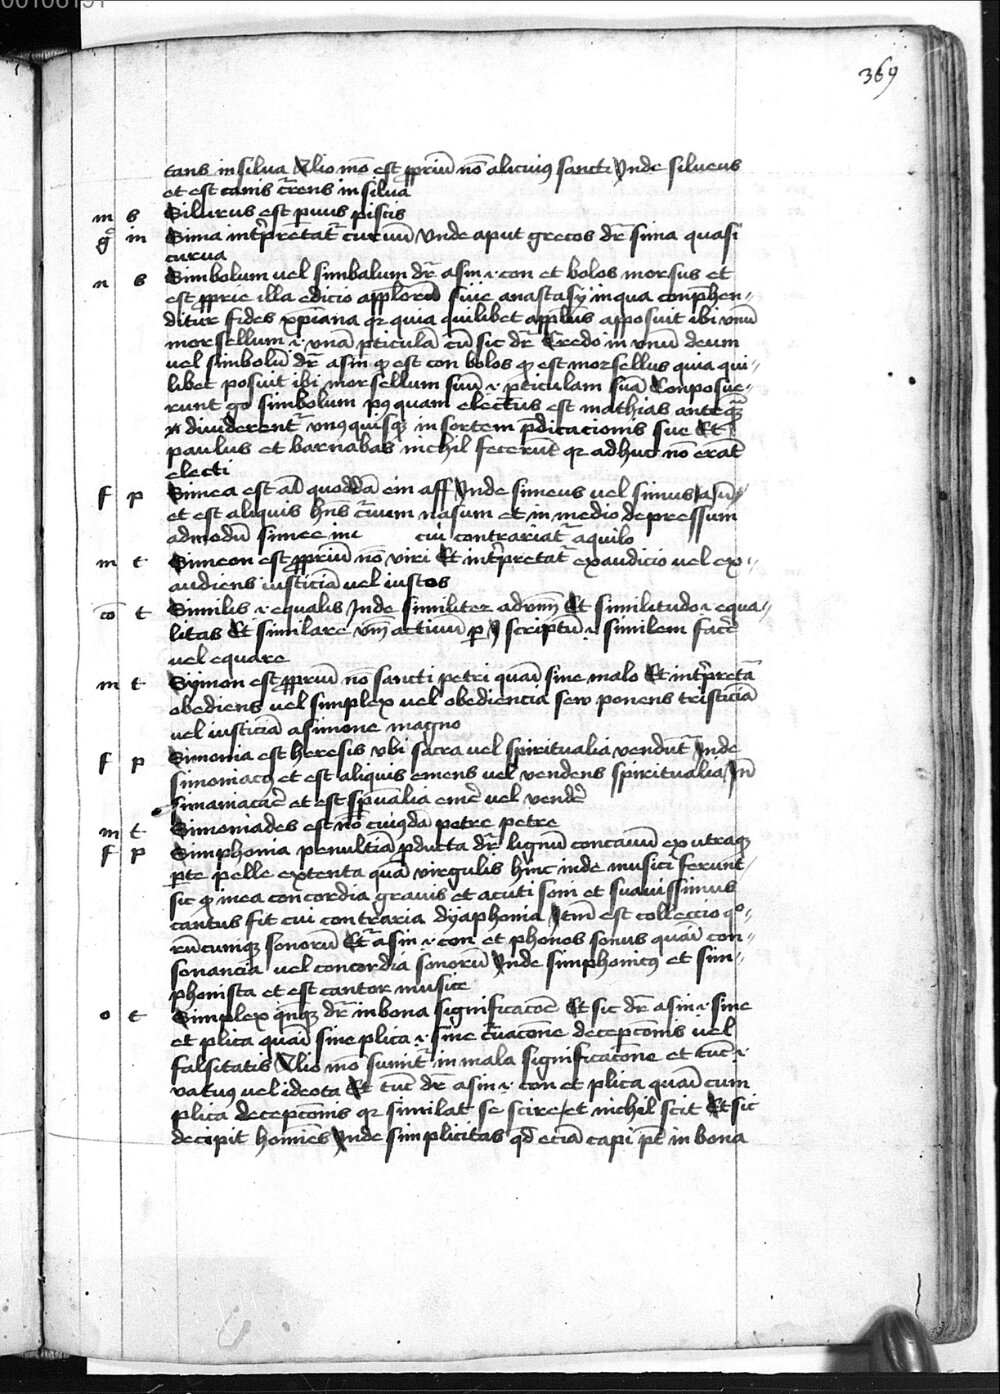 369
tans in silva Alio mo͞ est ꝓpriu͞ no͞ alicuiꝰ sancti Vnde silveus
et est canis cr͞ens in silva
m s Silurus est parvus piscis
g in Sima int͛pretat͛ curvu͞ Vnde aput grecos dr͛ sima quasi
curva
n s Simbolum vel simbalum dr͛ a sin .i. con et bolos morsus et
est ꝓprie illa edicio app͞lorum sive anastasij in qua conp͛hen-
ditur fides xp͞iana qr quia quilibet app͞lus apposuit ibi vnu͞
morsellum .i. vna͞ ꝑticula͞ cu͞ sic dr͛ Credo in vnu͞ deum
vel simbolu͞ dr͛ a sin qd est con bolos qd est morsellus quia qui-
libet posuit ibi morsellum suu͞ .i. ꝑticulam sua͞ Conposue-
runt gͦ simbolum pꝰquam electus est mathias anteq͞
dividerent͛ vnꝰquisqꝫ in sortem p͞dicacionis sue Et
paulus et barnabas nichil fecerut͞ qr adhuc no͞ era͞t
electi
f p Simea est a͞l quodda͞ ein aff Vnde simeus vel simus a um
et est aliquis hn͞s curvum nasum et in medio depressum
admodu͞ simee cui contrariat͛ aquilo
m t Simeon est ꝓpriu͞ no͞ viri Et int͛pretat͛ exaudicio vel ex-
audiens iusticia͞ vel iustos
co͞ t Similis .i. equalis Inde similiter adv͞m Et similitudo .i. equa-
litas Et similare v͞m activu͞ p scriptu͞ .i. similem fac͛e
vel equare
m t Symon est ꝓpriu͞ no͞ sancti petri quasi sine malo Et int͛preta͞
obediens vel simplex vel obediencia seu ponens tristicia͞
vel iusticia͞ a simone magno
f p Simonia est heresis vbi sacra vel spiritualia vendunt͛ Inde
simoniacꝰ et est aliquis emens vel vendens spiritualia In͞
simaniacar͛ et est sp͞ualia em͛e vel vend͛e
m t Simoniades est no͞ cuiusda͞ petre petre
f p Simphonia penultia͞ ꝓducta dr͛ lignu͞ concavu͞ ex utraqꝫ
ꝑte pelle extenta qua͞ virgulis hinc inde musici feriunt
sic qd in ea concordia gravis et acuti soni et suavissimus
cantus fit cui contraria dyaphonia Ite͞m est colleccio qͦ-
ru͞cumqꝫ sonoru͞ Et͛ a sin .i. con et phonos sonus quasi con-
sonancia vel concordia sonoru͞ Vnde simphonicꝰ et sim-
phonista et est cantor musice
o t Simplex qn͞qꝫ dr͛ in bona significaco͞e Et sic dr͛ a sin .i. sine
et plica quasi sine plica .i. sine cu͛vacone decepco͞nis vel
falsitatis Alio mo͞ sumit͛ in mala significaco͞ne et tu͞c .i.
vatuus vel ideota Et tu͞c dr͛ a sin .i. con et plica quasi cum
plica decepco͞nis qr similat se scire et nichil scit Et sic
decipit homie͞s Vnde simplicitas qd ecia͞ capi p͞t in bona